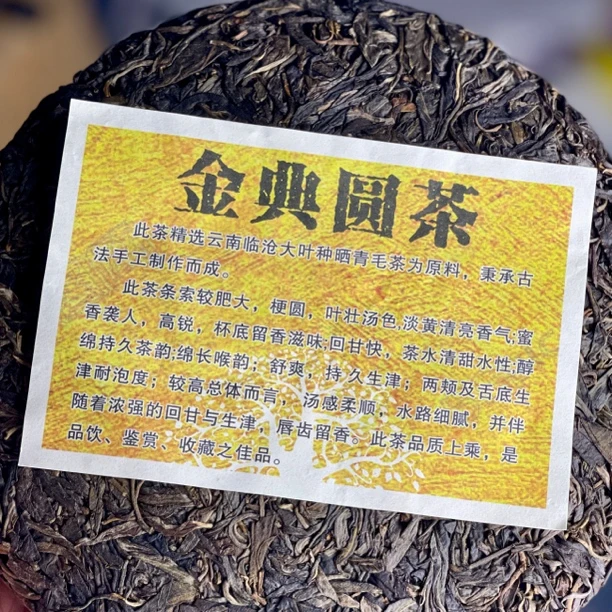 金典圆茶
此茶精选云南临沧大叶种晒青毛茶为原料，秉承古
法手工制作而成。
此茶条索较肥大，梗圆，叶壮汤色,淡黄清亮香气;蜜
香袭人，高锐，杯底留香滋味;回甘快，茶水清甜水性;醇
绵持久茶韵;绵长喉韵；舒爽，持久生津；两颊及舌底生
津耐泡度；较高总体而言，汤感柔顺，水路细腻，并伴
随着浓强的回甘与生津，唇齿留香。此茶品质上乘，是
品饮、鉴赏、收藏之佳品。